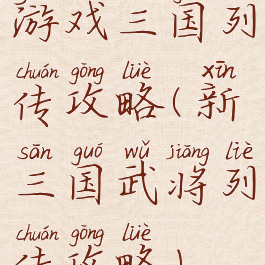 游戏三国列
chuán gōng lüè xīn
传攻略(新
sān guó wǔ jiāng liè
三国武将列
chuán gōng lüè
传攻略)